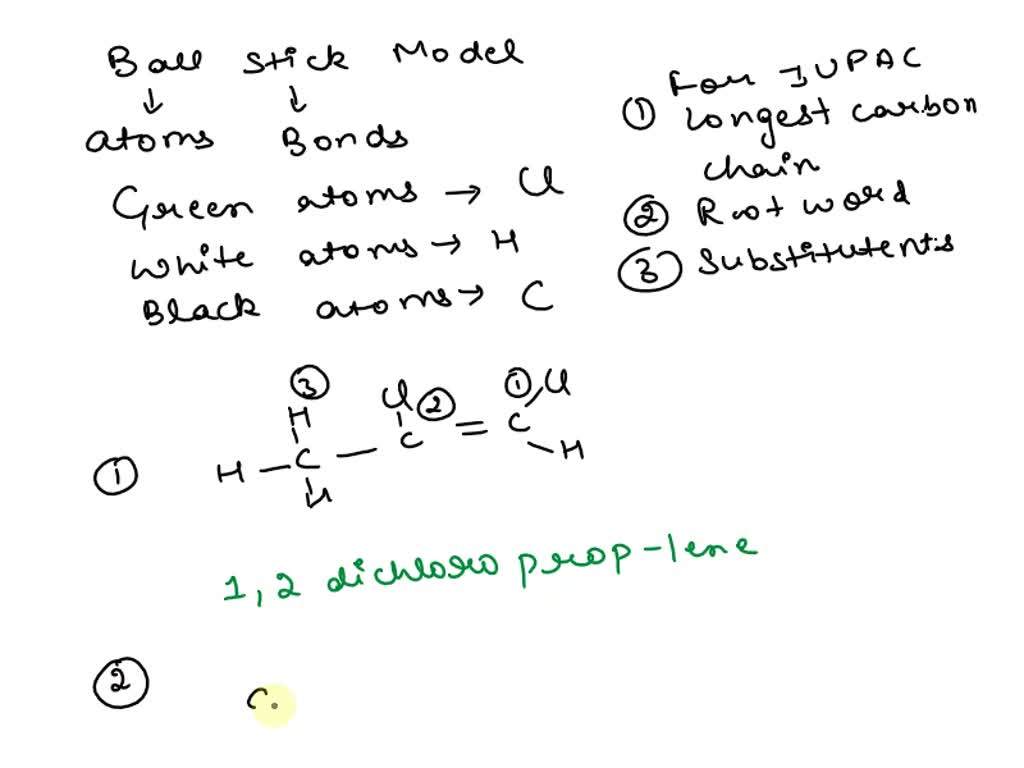 Ball stick Model
↓ ↓
atoms Bonds
Green atoms → Cl
white atoms → H
Black atoms → C
For IUPAC
① Longest carbon
chain
② Root word
③ Substitutents
③ Cl ② ① Cl
H
① H - C - C = C
H
H
1,2 dichloro prop-1ene
② C